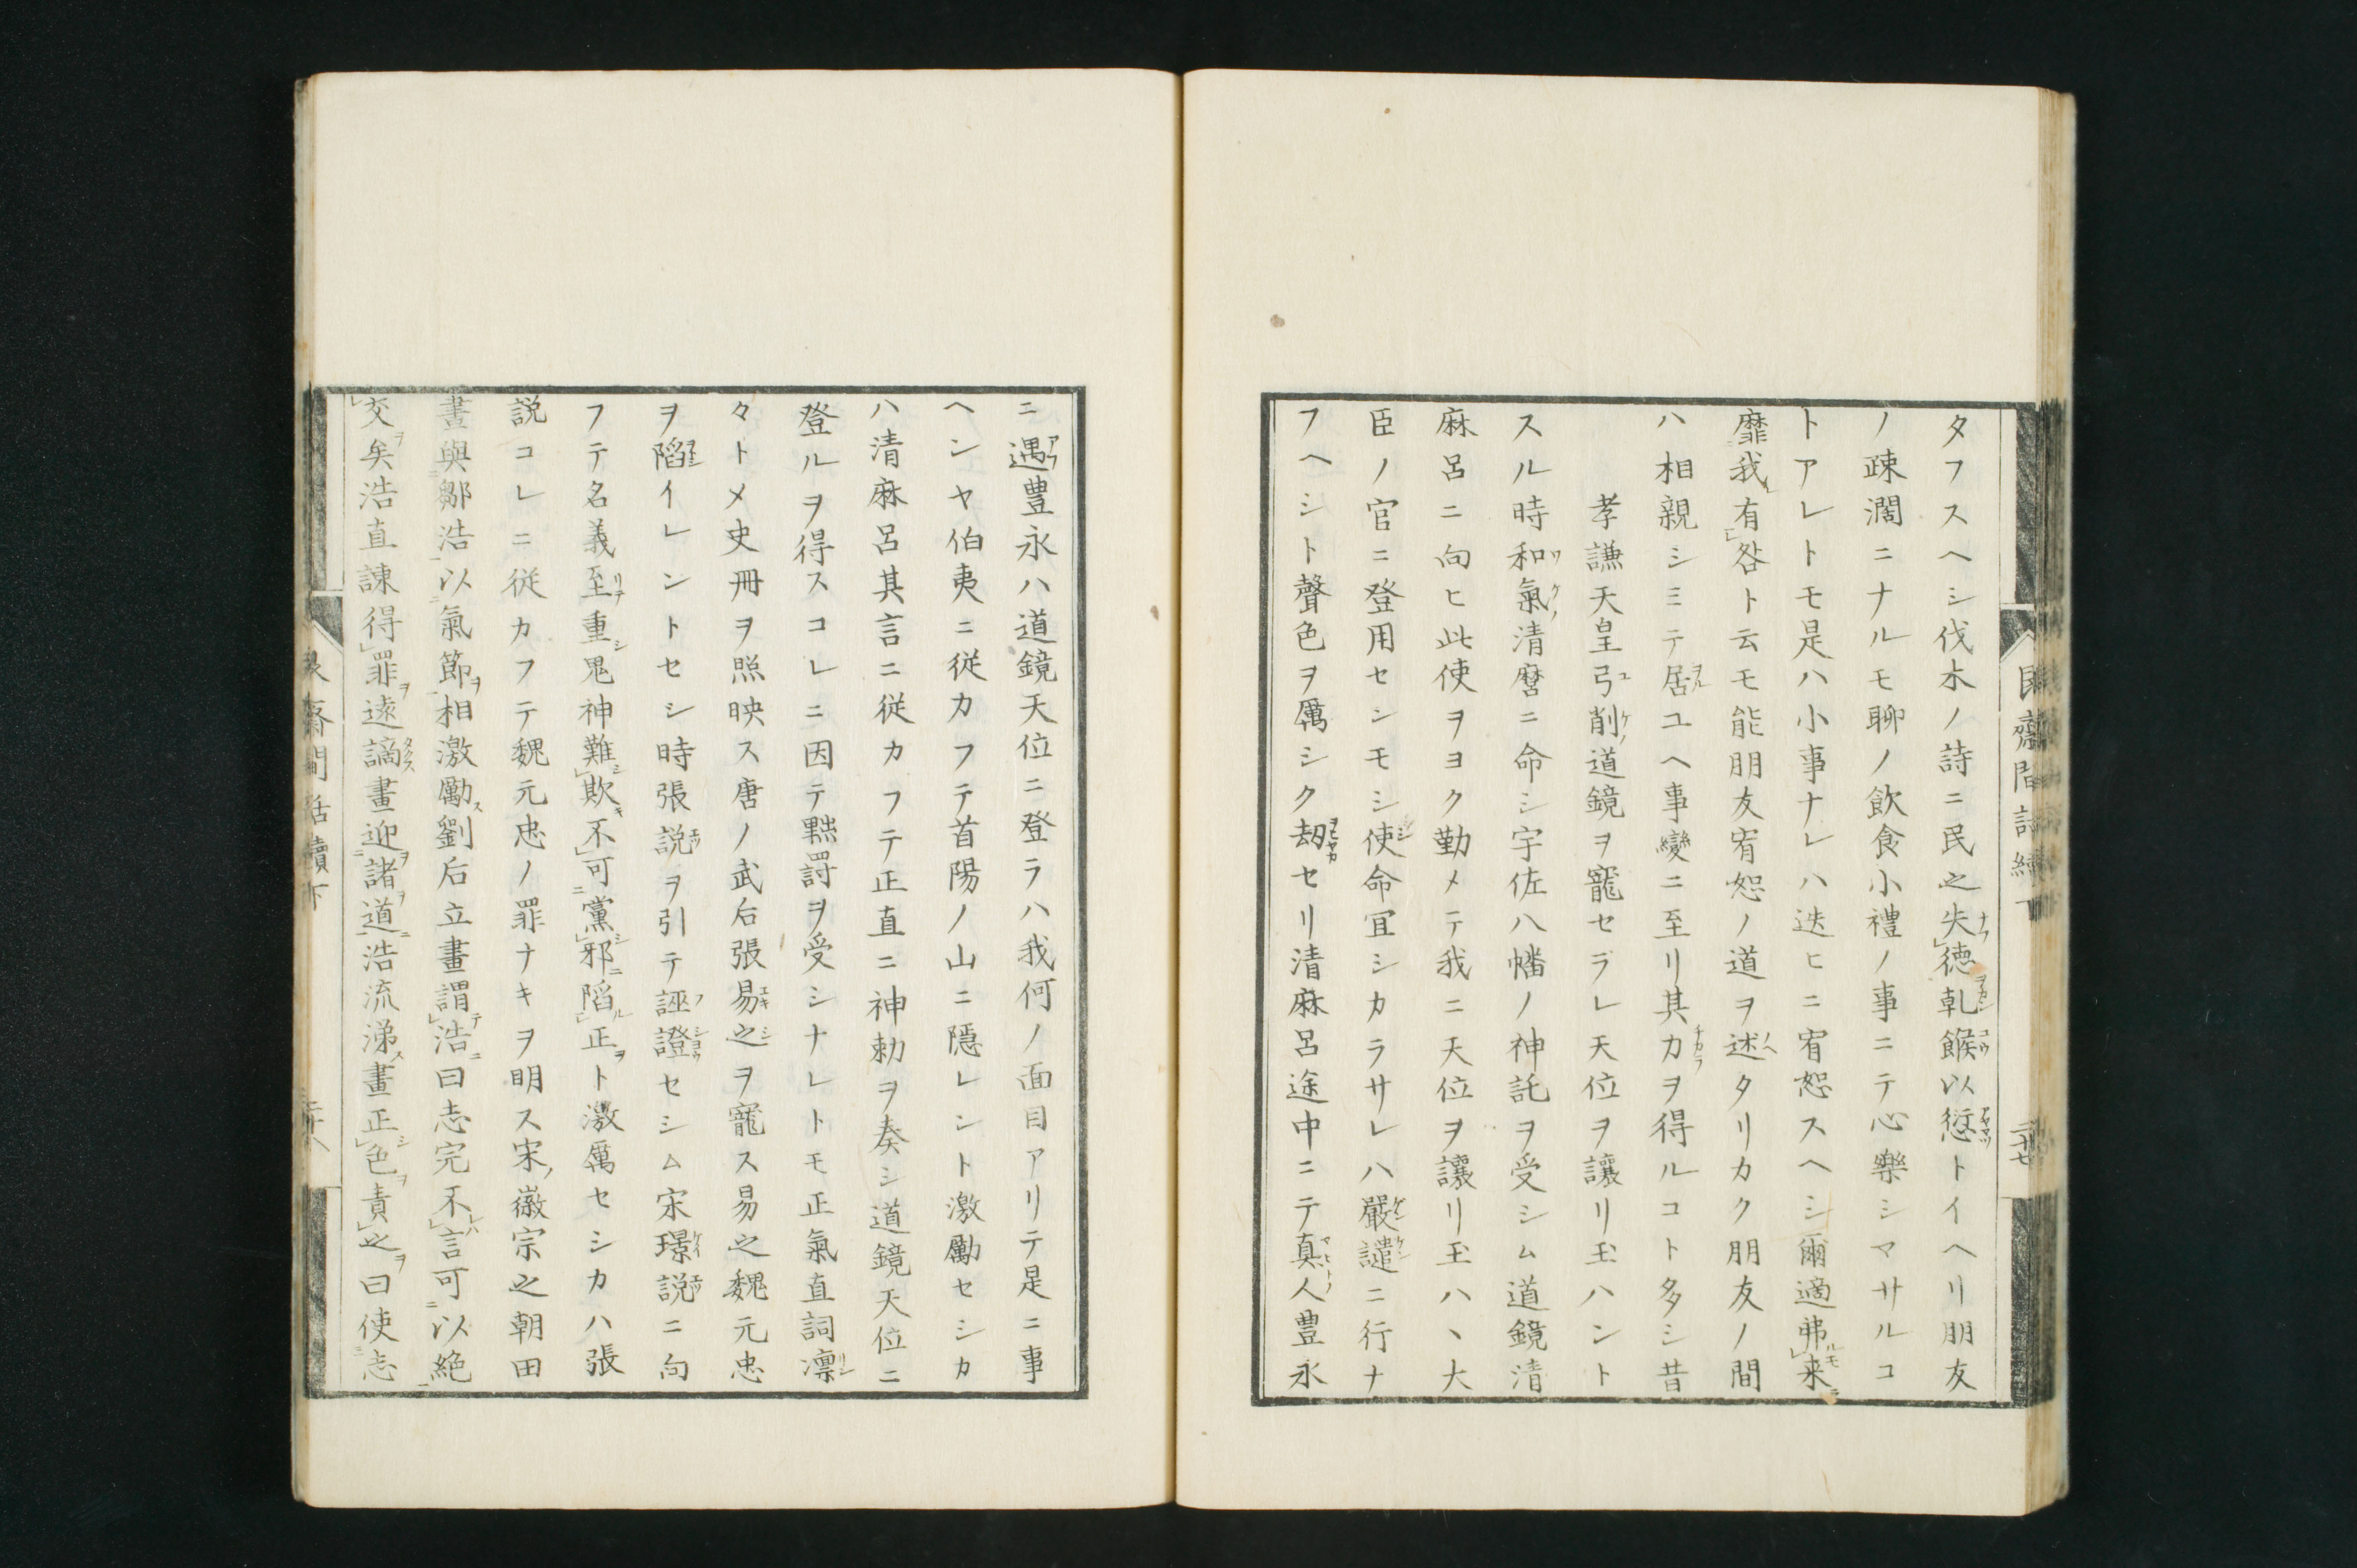 タフスヘシ伐木ノ詩ニ民之失德乹餱以愆トイヘリ朋友
ノ疎濶ニナルモ聊ノ飲食小禮ノ事ニテ心樂シマサルコ
トアレトモ是ハ小事ナレハ迭ヒニ宥恕スヘシ爾適弗来
靡我有咎ト云モ能朋友宥恕ノ道ヲ述タリカク朋友ノ間
ハ相親シミテ居ユヘ事變ニ至リ其力ヲ得ルコト多シ昔
孝謙天皇弓削道鏡ヲ寵セラレ天位ヲ讓リ玉ハント
スル時和氣清麿ニ命シ宇佐八幡ノ神託ヲ受シム道鏡清
麻呂ニ向ヒ此使ヲヨク勤メテ我ニ天位ヲ讓リ玉ハヽ大
臣ノ官ニ登用センモシ使命冝シカラサレハ嚴譴ニ行ナ
フヘシト聲色ヲ厲シク刼セリ清麻呂途中ニテ真人豊永
ニ遇豊永ハ道鏡天位ニ登ラハ我何ノ面目アリテ是ニ事
ヘンヤ伯夷ニ従カフテ首陽ノ山ニ隱レント激勵セシカ
ハ清麻呂其言ニ従カフテ正直ニ神勅ヲ奏シ道鏡天位ニ
登ルヲ得スコレニ因テ黜罸ヲ受シナレトモ正氣直詞凛
々トメ史冊ヲ照映ス唐ノ武后張易之ヲ寵ス易之魏元忠
ヲ陷イレントセシ時張説ヲ引テ誣證セシム宋璟説ニ向
フテ名義至重鬼神難欺不可黨邪陷正ト激厲セシカハ張
説コレニ従カフテ魏元忠ノ罪ナキヲ明ス宋徽宗之朝田
晝與鄒浩以氣節相激勵劉后立晝謂浩曰志完不言可以絶
交矣浩直諌得罪遠謫晝迎諸道浩流涕晝正色責之曰使志